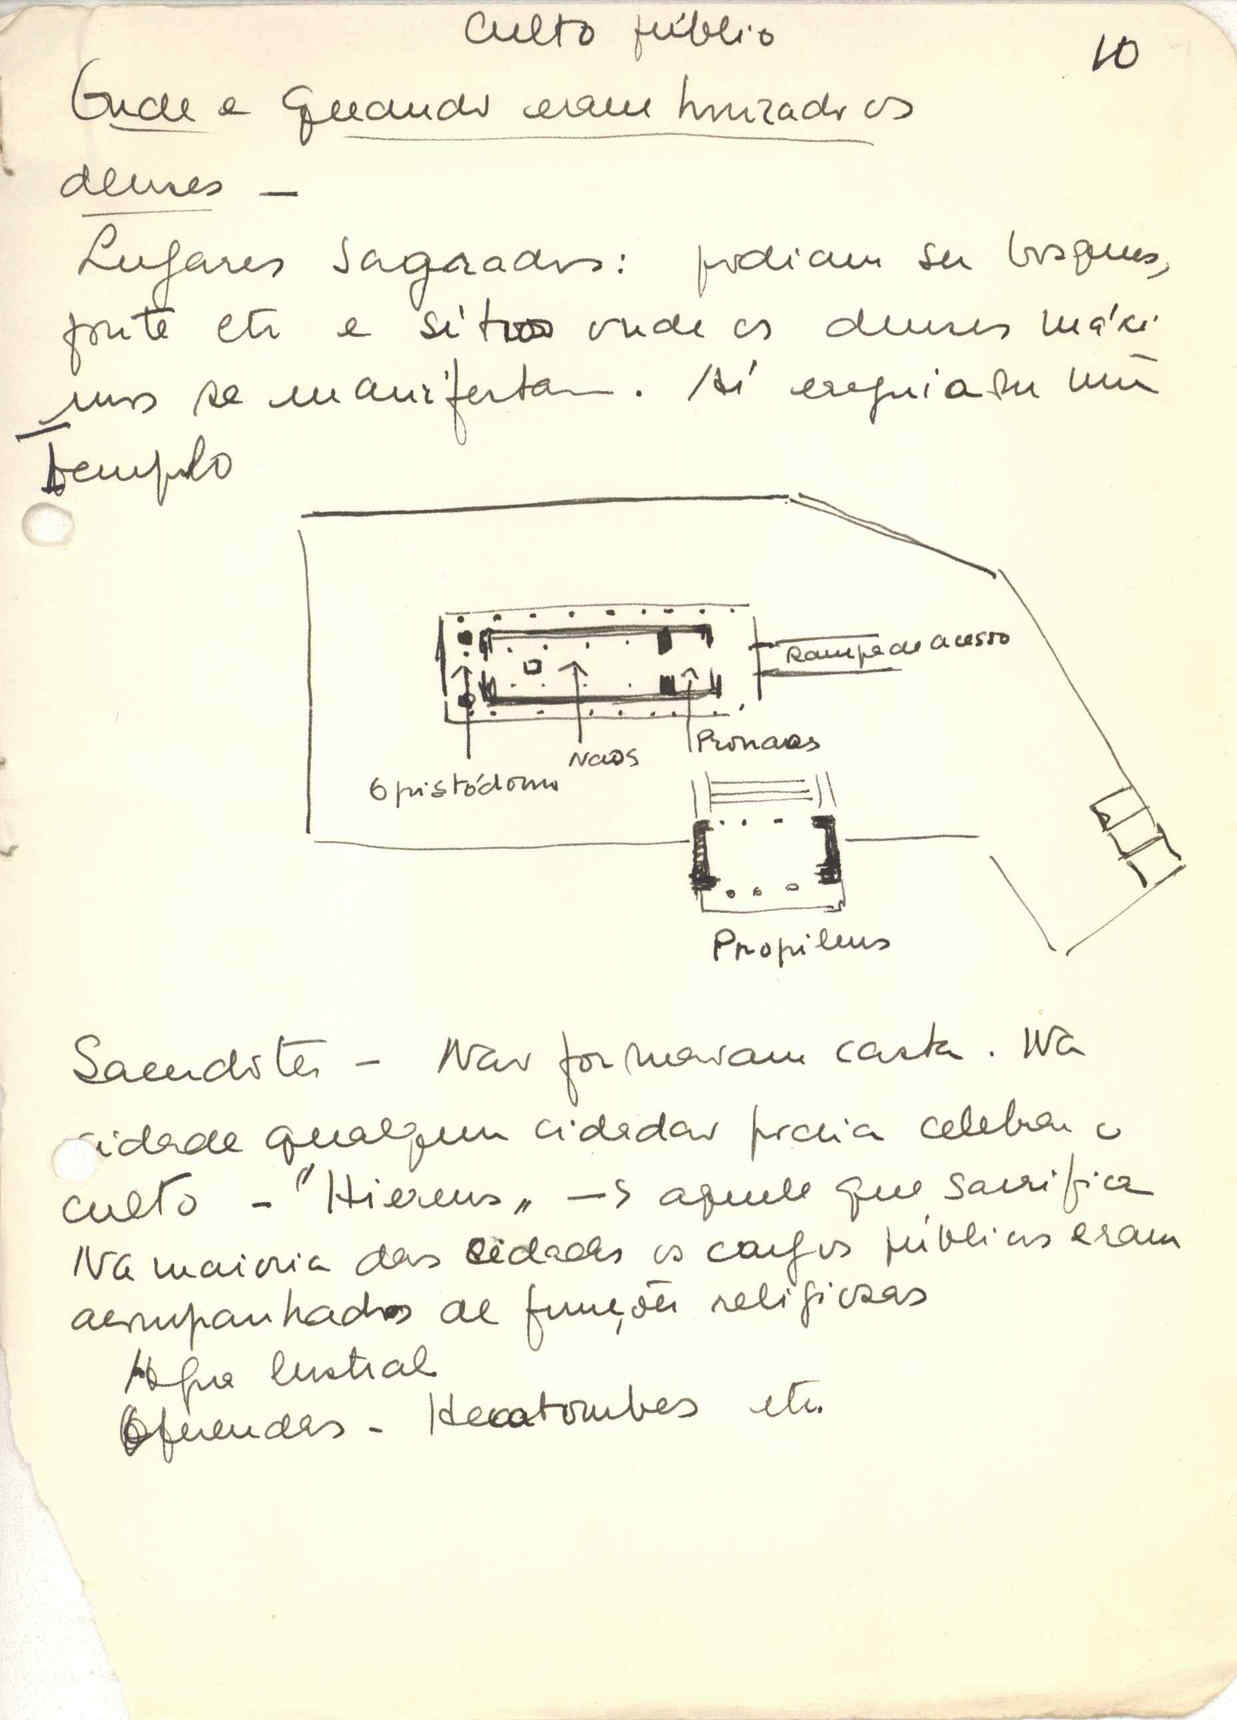 Culto público
10
Onde e Quando eram honrados os
deuses –
Lugares sagrados: podiam ser bosques,
fonte etc e sítios onde os deuses máxi
mos se manifestam. Aí erguia-se um
templo
Rampa de acesso
Pronaos
Naos
Opistódomo
Propileus
Sacerdotes – Não formavam casta. Na
cidade qualquer cidadão podia celebrar o
culto – "Hiereus" → aquele que sacrifica
Na maioria das cidades os cargos públicos eram
acompanhados de funções religiosas
Água lustral
Oferendas – Hecatombes etc.